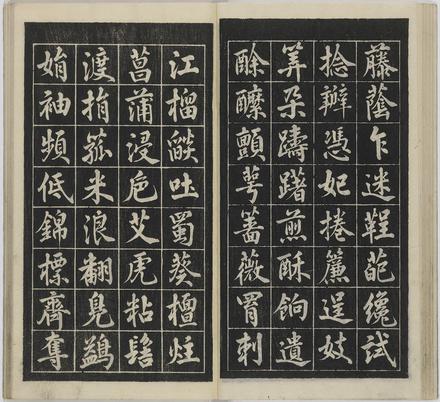 藤蔭乍迷鞓葩纔試
捻辦憑妃捲簾逞妓
筭朵躊躇煎酥餉遺
酴醾顫萼薔薇罥刺
江榴燄吐蜀葵檀炷
菖蒲浸卮艾虎粘髻
渡捎菰米浪翻鳧鷁
娟袖頻低錦標齊奪